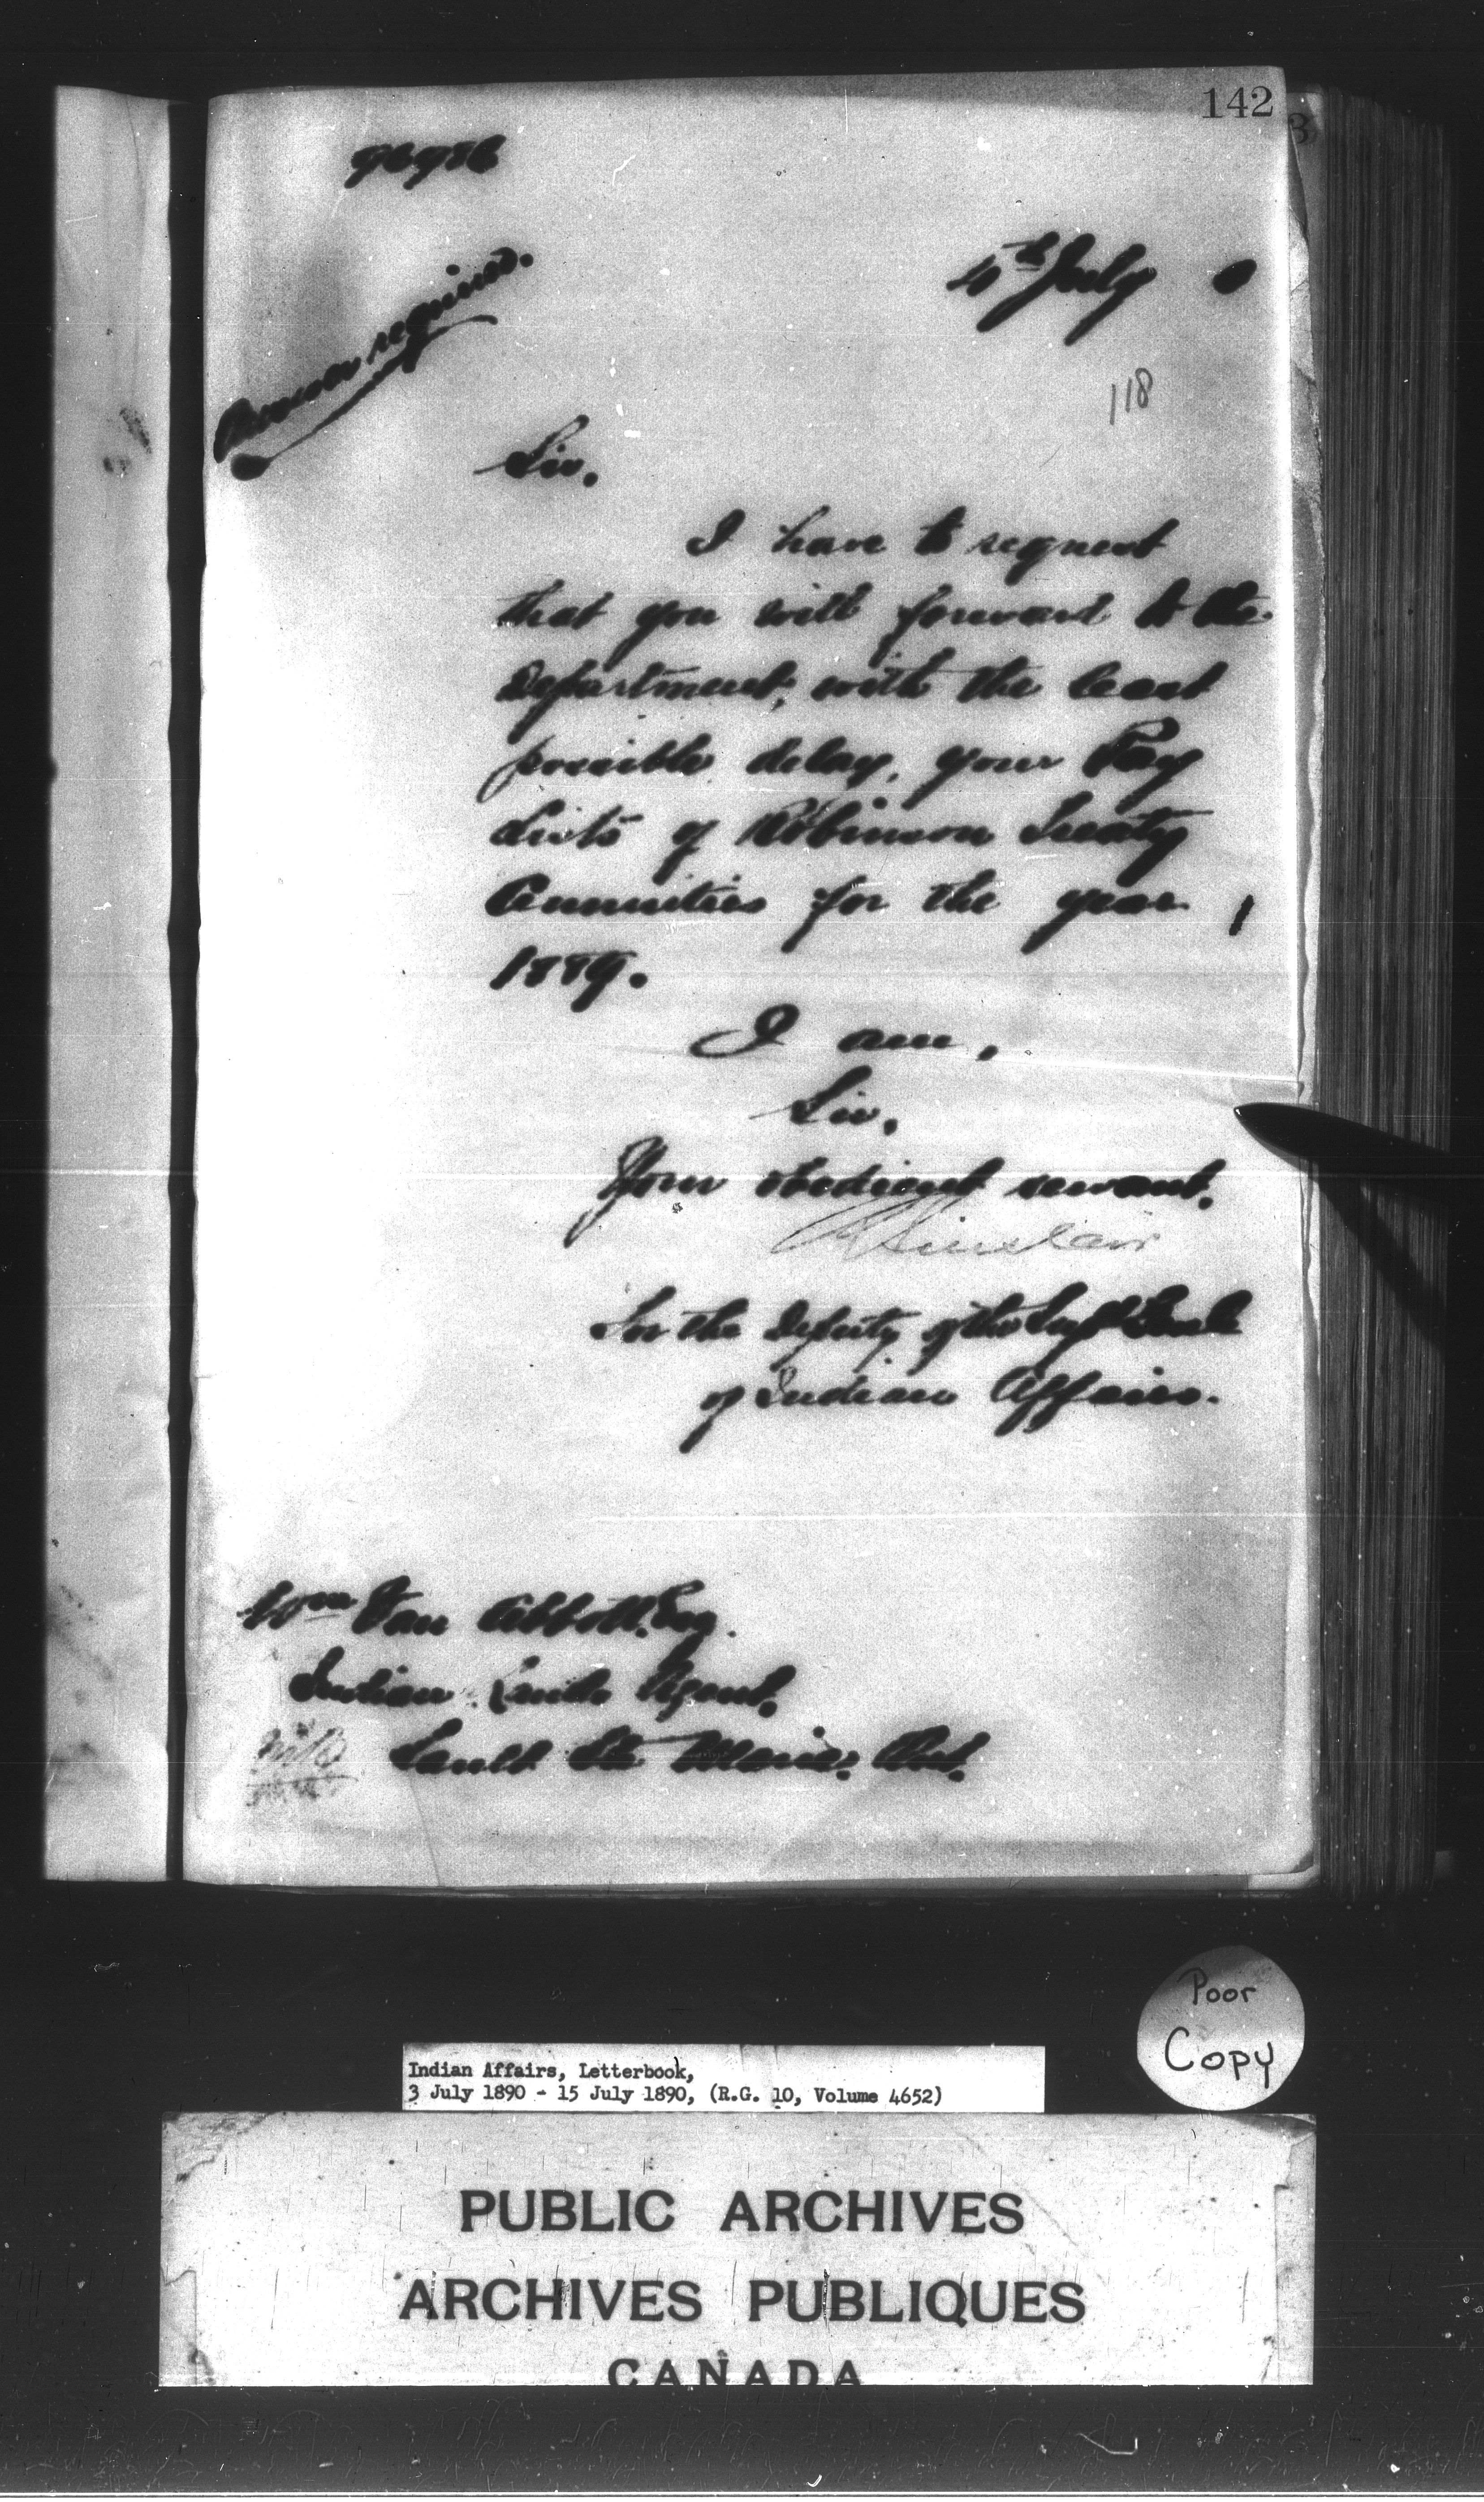 142
96986
Answer required.
4th July 0
118
Sir,
I have to request
that you will forward to the
Department, with the least
possible delay, your Pay
Lists of Robinson Treaty
Annuities for the year
1889.
I am,
Sir,
Your obedient servant,
Sinclair
For the Deputy of the Supt Genl
of Indian Affairs.
Wm Van Abbott, Esq.
Indian Lands Agent,
Sault Ste Marie, Ont.
Poor
Copy
Indian Affairs, Letterbook,
3 July 1890 - 15 July 1890, (R.G. 10, Volume 4652)
PUBLIC ARCHIVES
ARCHIVES PUBLIQUES
CANADA